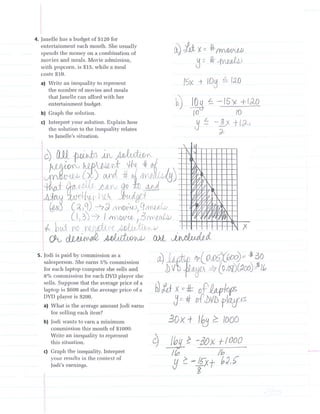 4. Janelle has a budget of $120 for
entertainment each month. She usually
spends the money on a combination of
movies and meals. Movie admission,
with popcorn, is $15, while a meal
costs $10.
a) Write an inequality to represent
the number of movies and meals
that Janelle can afford with her
entertainment budget.
b) Graph the solution.
c) Interpret your solution. Explain how
the solution to the inequality relates
to Janelle's situation.
a) Let x = # movies
y = # meals
15x + 10y ≤ 120
b) 10y ≤ -15x + 120
10 10
y ≤ -3x + 12
2
c) all points in solution
region represent the # of
movies (x) and # of meals (y)
that Janelle can go to and
stay within her budget
(2, 9) → 2 movies, 9 meals
(1, 3) → 1 movie, 3 meals
but no negative solutions
or decimal solutions are included
x
5. Jodi is paid by commission as a
salesperson. She earns 5% commission
for each laptop computer she sells and
8% commission for each DVD player she
sells. Suppose that the average price of a
laptop is $600 and the average price of a
DVD player is $200.
a) What is the average amount Jodi earns
for selling each item?
b) Jodi wants to earn a minimum
commission this month of $1000.
Write an inequality to represent
this situation.
c) Graph the inequality. Interpret
your results in the context of
Jodi's earnings.
a) Laptop → (0.05)(600) = $30
DVD player → (0.08)(200) = $16
b) Let x = # of laptops
y = # of DVD players
30x + 16y ≥ 1000
c) 16y ≥ -30x + 1000
16 16
y ≥ -15x + 62.5
8